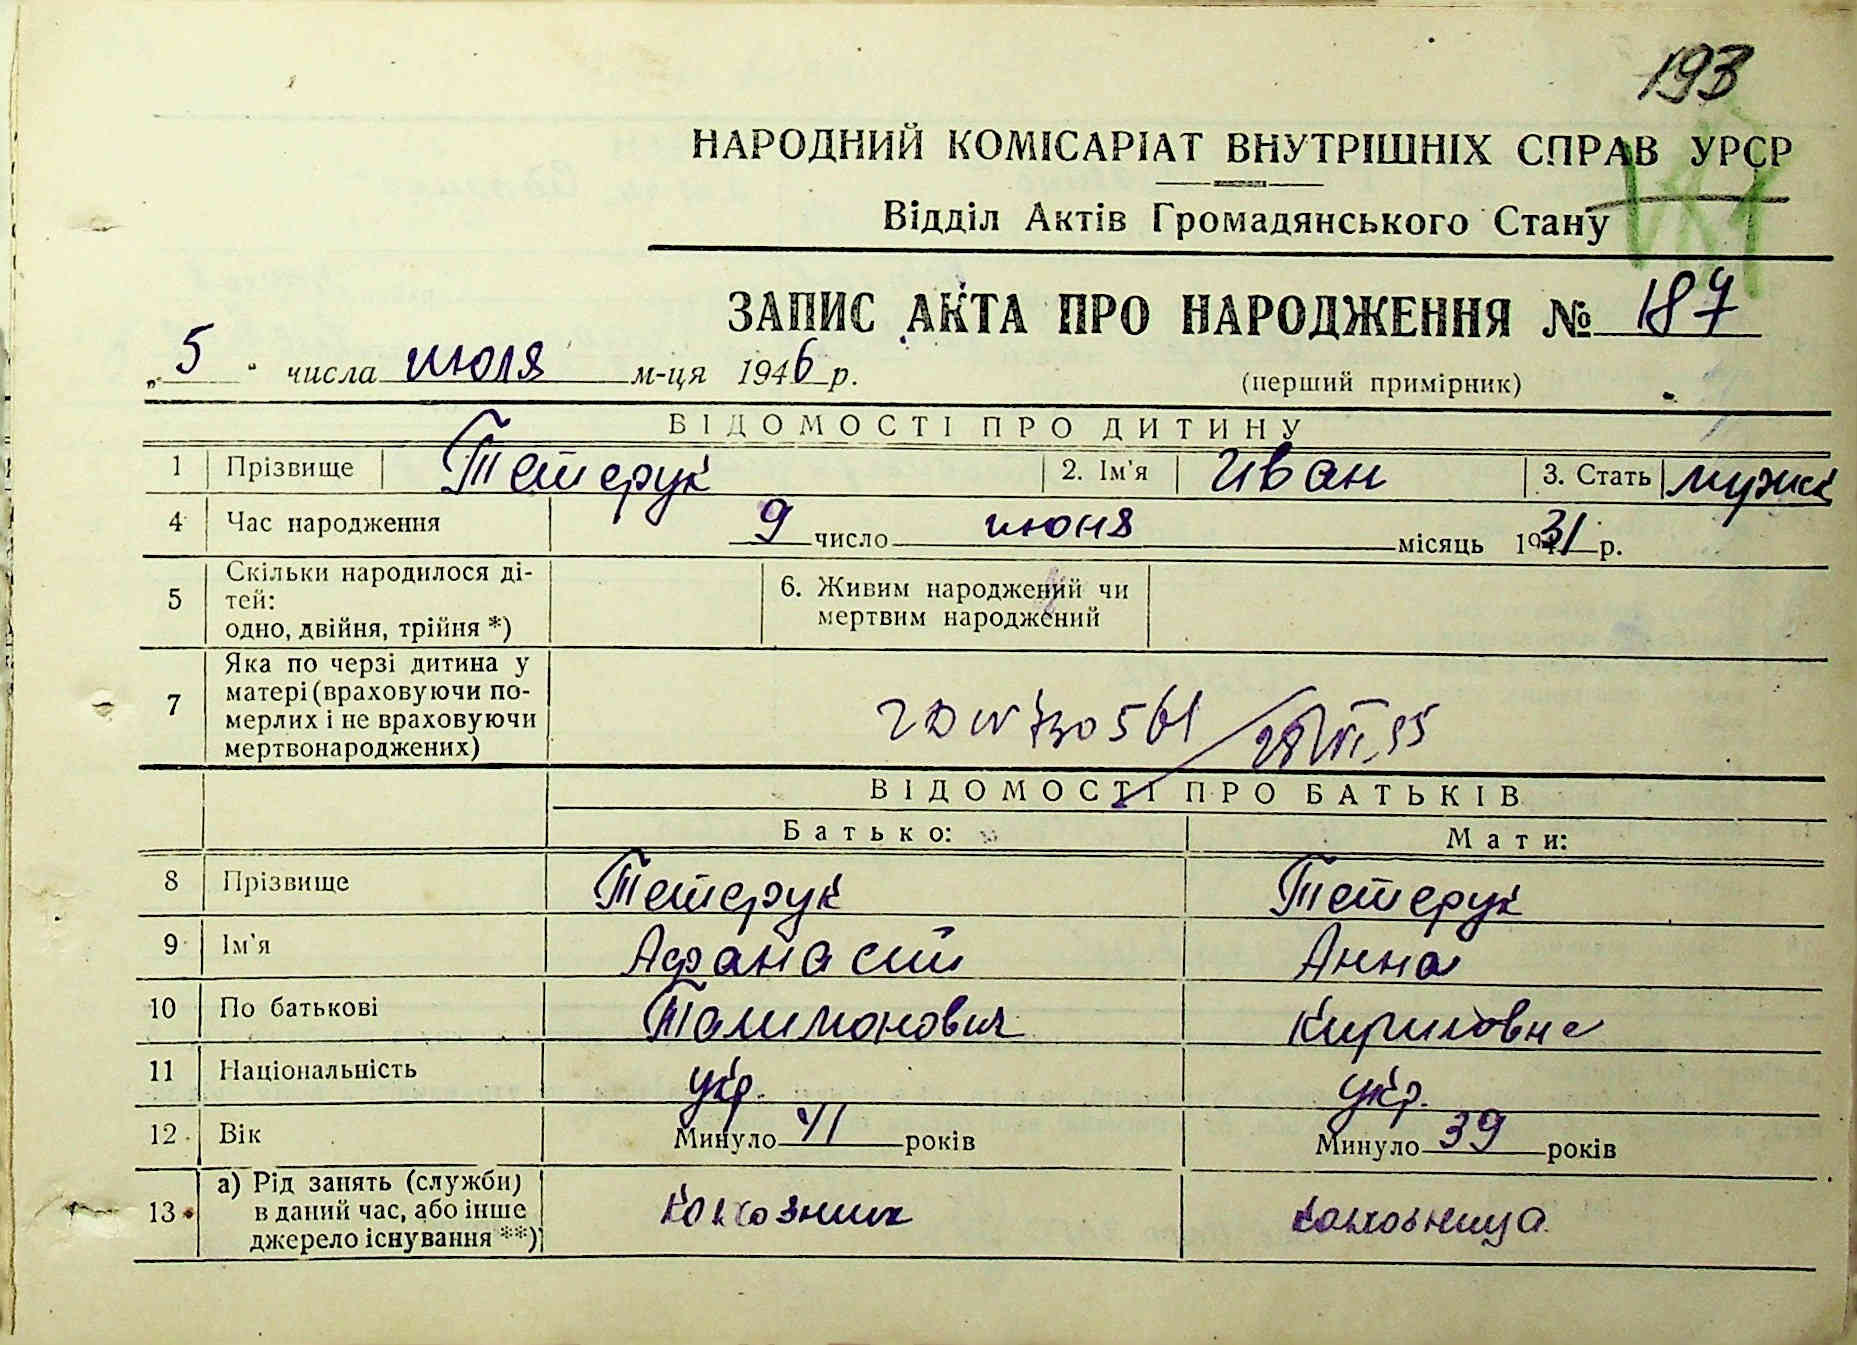 193
НАРОДНИЙ КОМІСАРІАТ ВНУТРІШНІХ СПРАВ УРСР
Відділ Актів Громадянського Стану
ЗАПИС АКТА ПРО НАРОДЖЕННЯ № 187
„ 5 " числа июля м-ця 1946 р. (перший примірник)
ВІДОМОСТІ ПРО ДИТИНУ
1 Прізвище Тетерук 2. Ім'я Иван 3. Стать мужск
4 Час народження 9 число июня місяць 1931 р.
5 Скільки народилося ді-
тей:
одно, двійня, трійня *)
6. Живим народжений чи
мертвим народжений
7 Яка по черзі дитина у
матері (враховуючи по-
мерлих і не враховуючи
мертвонароджених)
730561
ВІДОМОСТІ ПРО БАТЬКІВ
Батько: Мати:
8 Прізвище Тетерук Тетерук
9 Ім'я Афанасий Анна
10 По батькові Кириловна
11 Національність укр. укр.
12 Вік Минуло 41 років Минуло 39 років
13 а) Рід занять (служби)
в даний час, або інше
джерело існування **)
колхозник колхозница